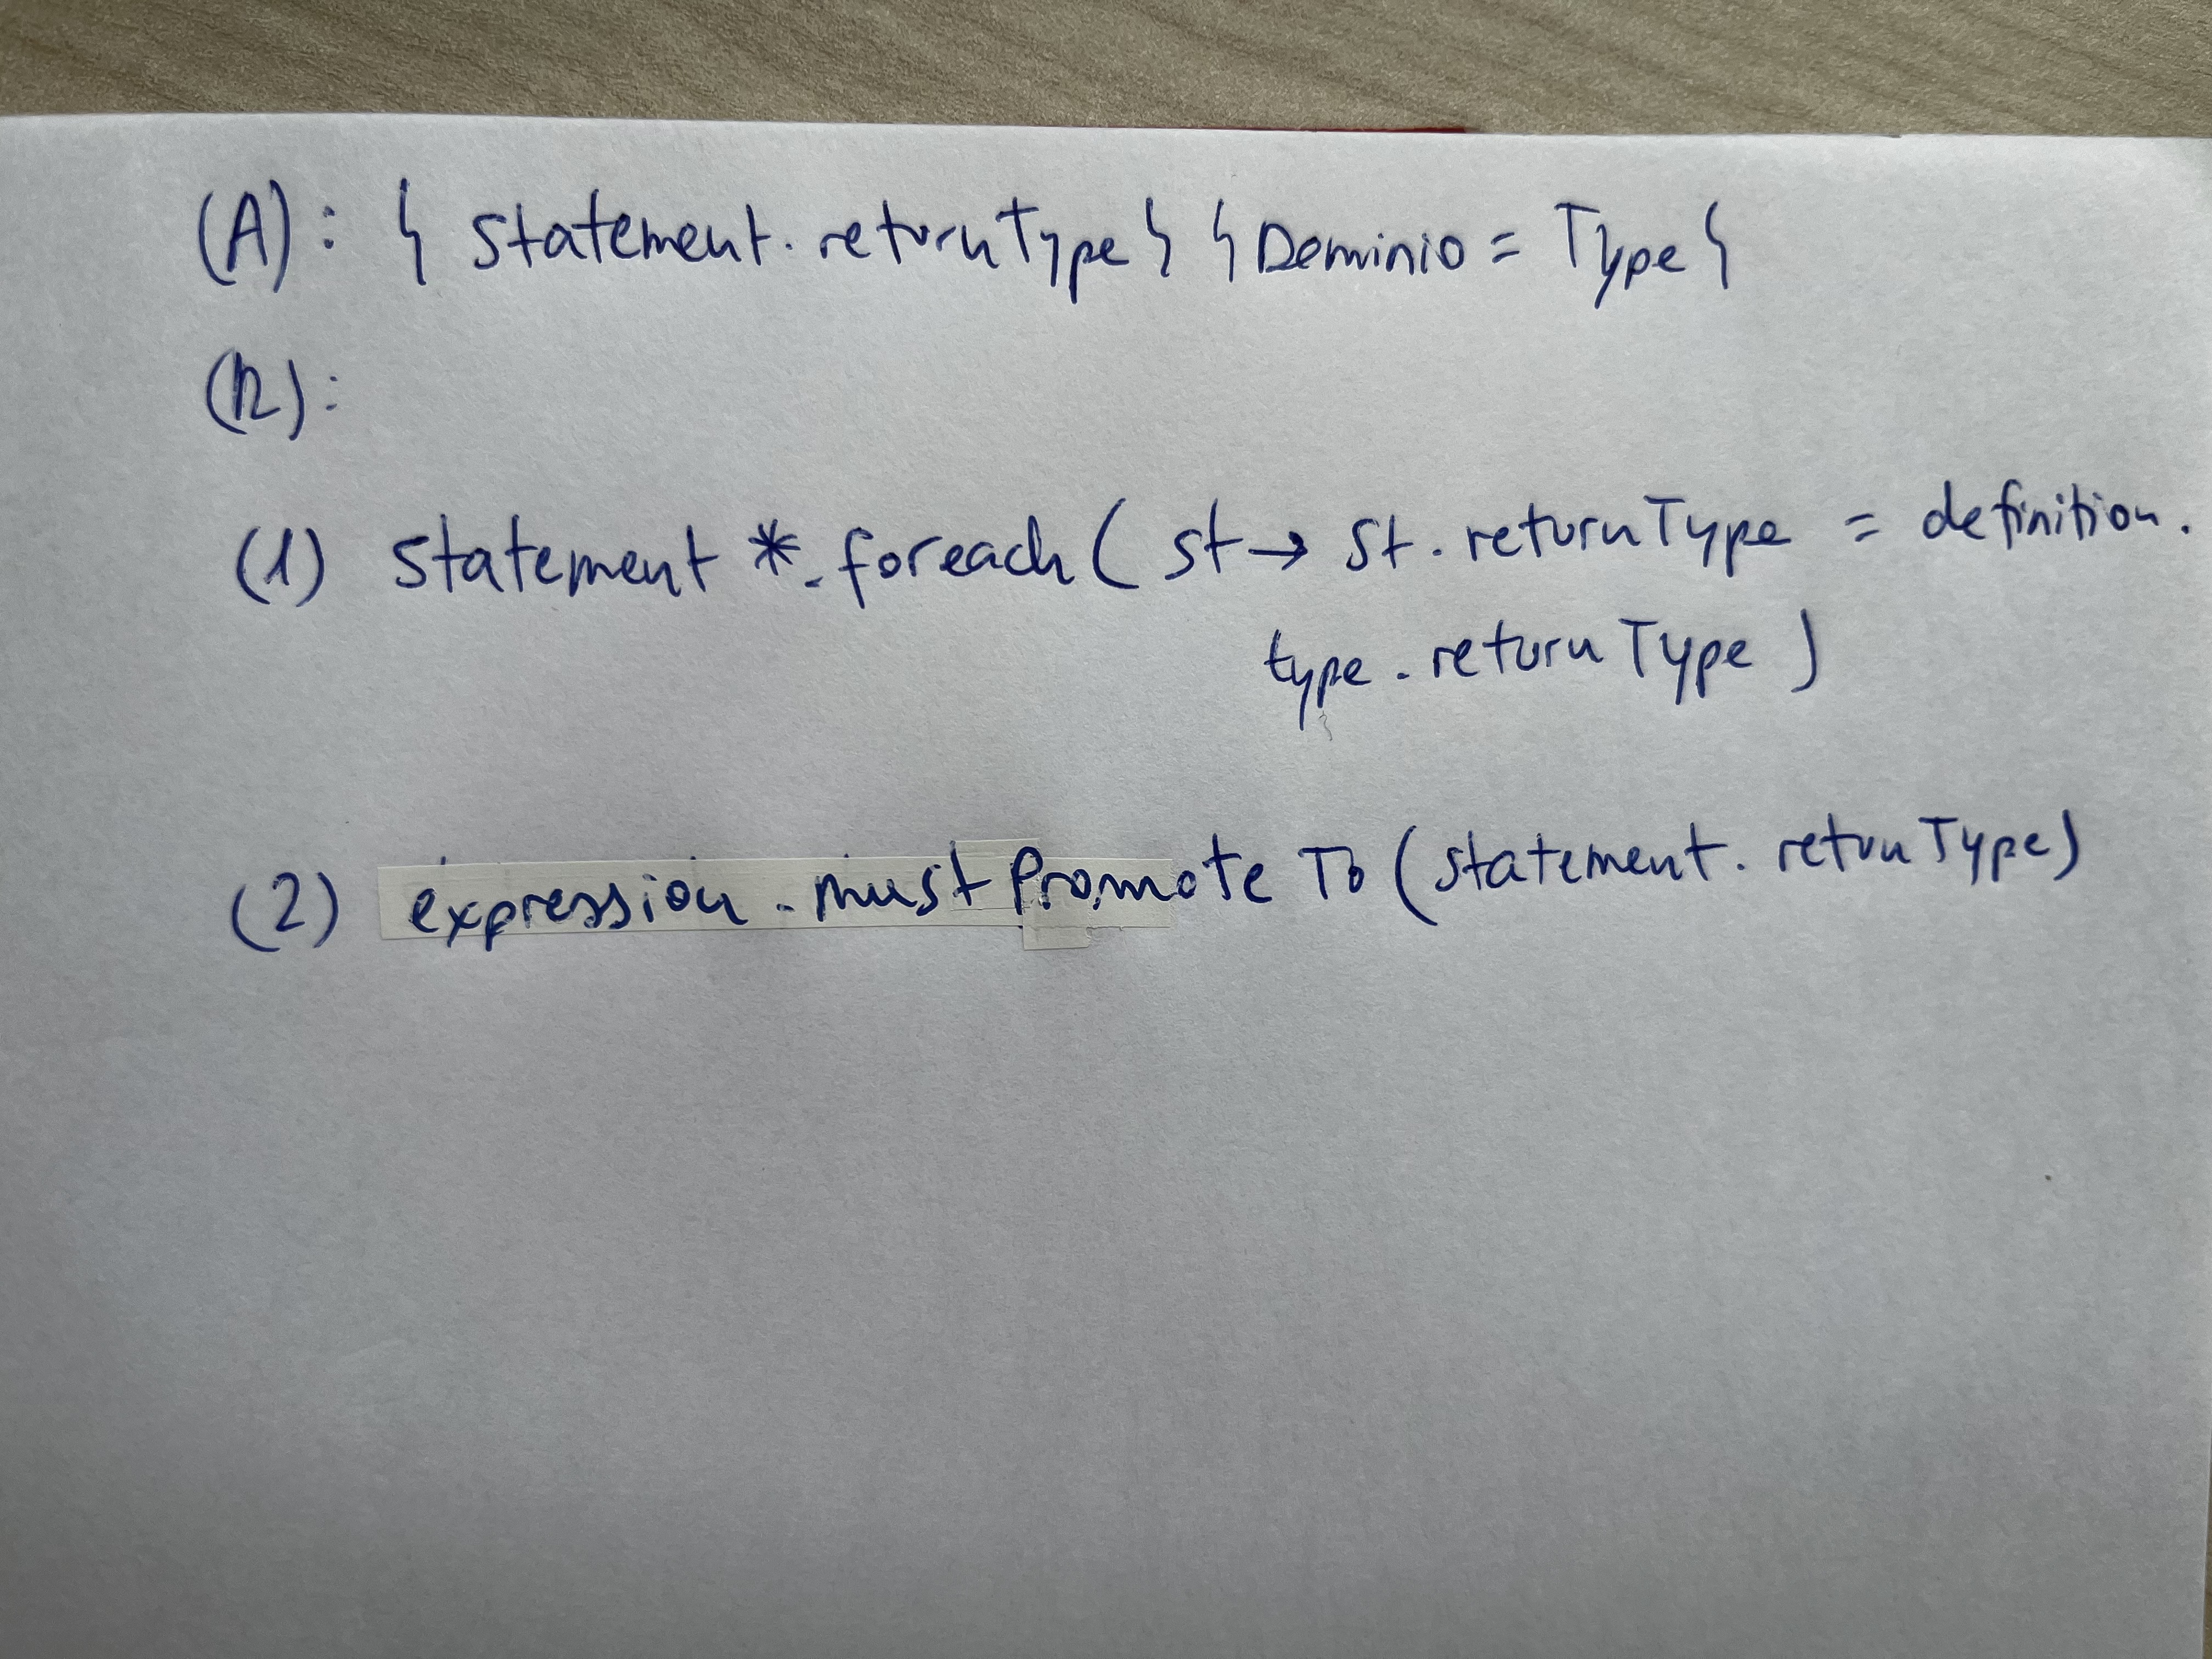 (A): { statement.returnType } { Dominio = Type }
(R):
(1) statement *.foreach ( st → st.returnType = definition.
type.returnType )
(2) expression.mustPromoteTo (statement.retunType)